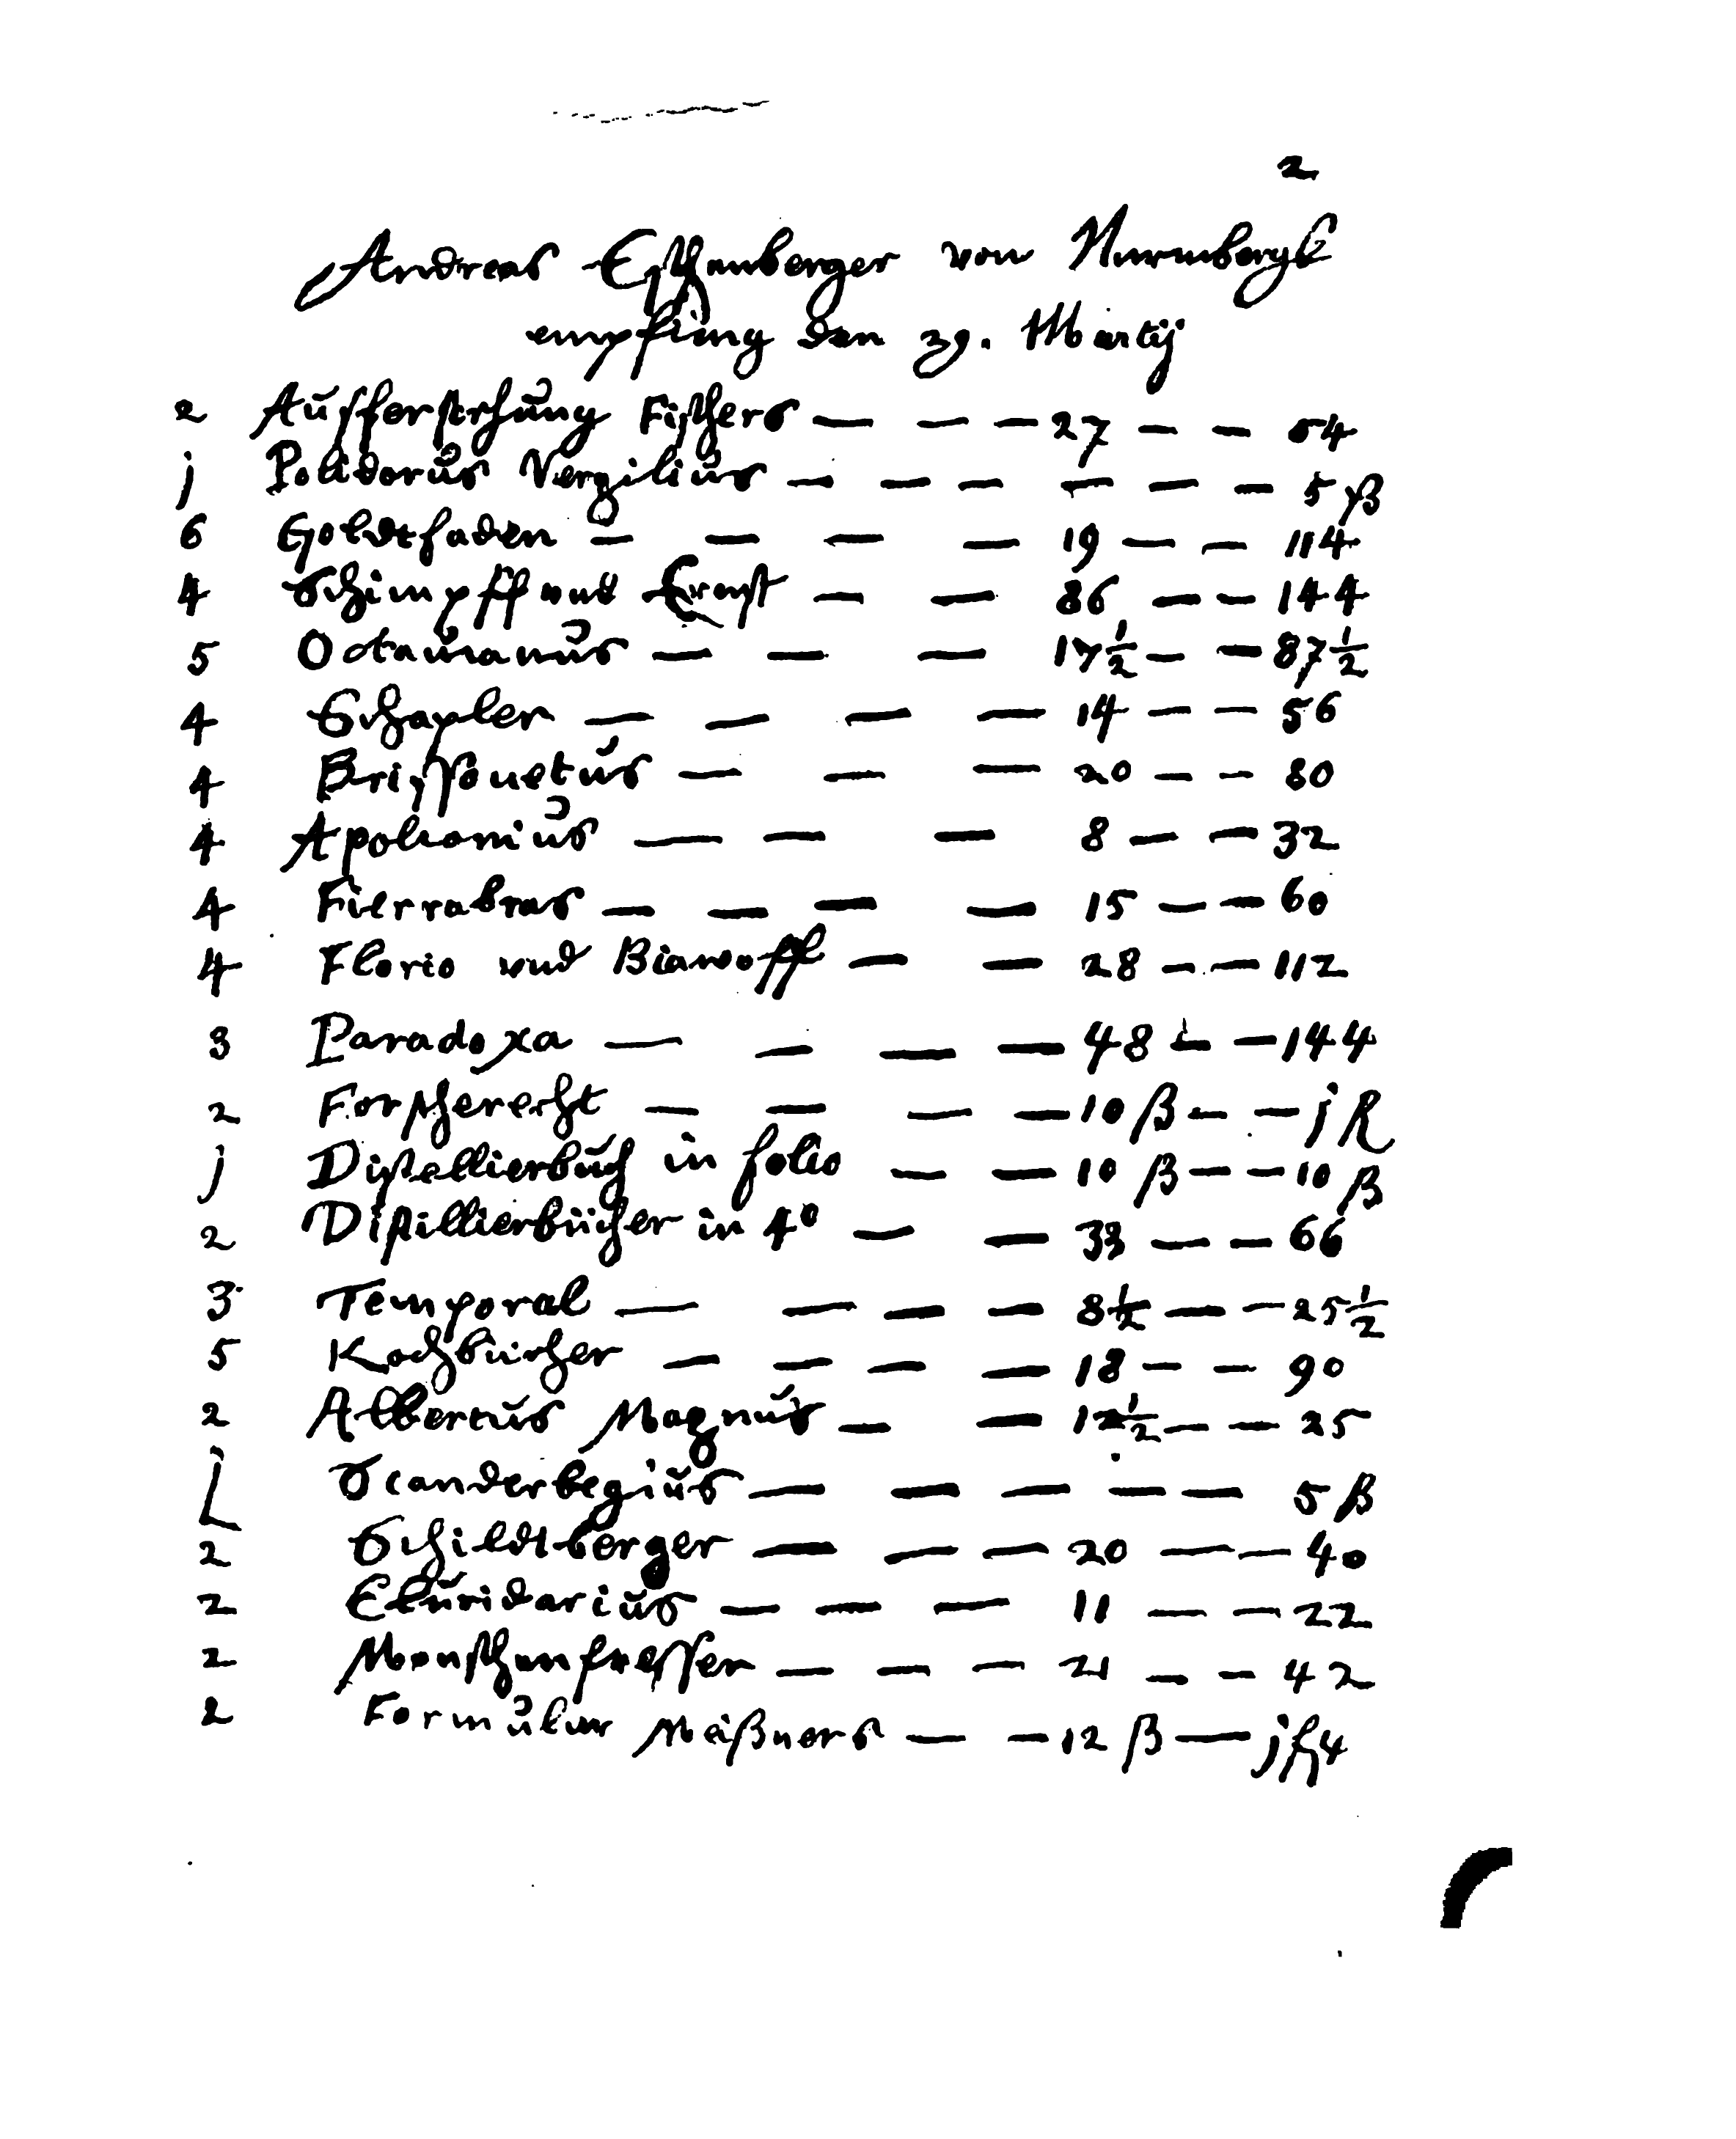 2
Andreas Eschenberger von Nurmbergk
empfing den 29. Martij
2 Aufferstehung Fischers — — — 27 — — 54
j Polidorus Vergilius — — — — — — 5 ß
6 Goldtfaden — — — — 19 — — 114
4 Schimpff vnd Ernst — — 36 — — 144
5 Octauianus — — — 17½ — — 87½
4 Schapler — — — — 14 — — 56
4 Brissonetus — — — 20 — — 80
4 Apolonius — — — 8 — — 32
4 Fierrabras — — — — 15 — — 60
4 Florio vnd Biancoff — — 28 — — 112
3 Paradoxa — — — — 48 — — 144
2 Forstherecht — — — — 10 ß — — j fl
j Distellierbuch in folio — — 10 ß — — 10 ß
2 Distillierbücher in 4º — — 33 — — 66
3 Temporal — — — — 8½ — — 25½
5 Kochbücher — — — — 18 — — 90
2 Albertus Magnus — — 12½ — — 25
j Scanderbegius — — — — — 5 ß
2 Schildtberger — — — 20 — — 40
2 Elucidarius — — — 11 — — 22
2 Menschenfresser — — — 21 — — 42
2 Formular Meißners — — 12 ß — j fl 4